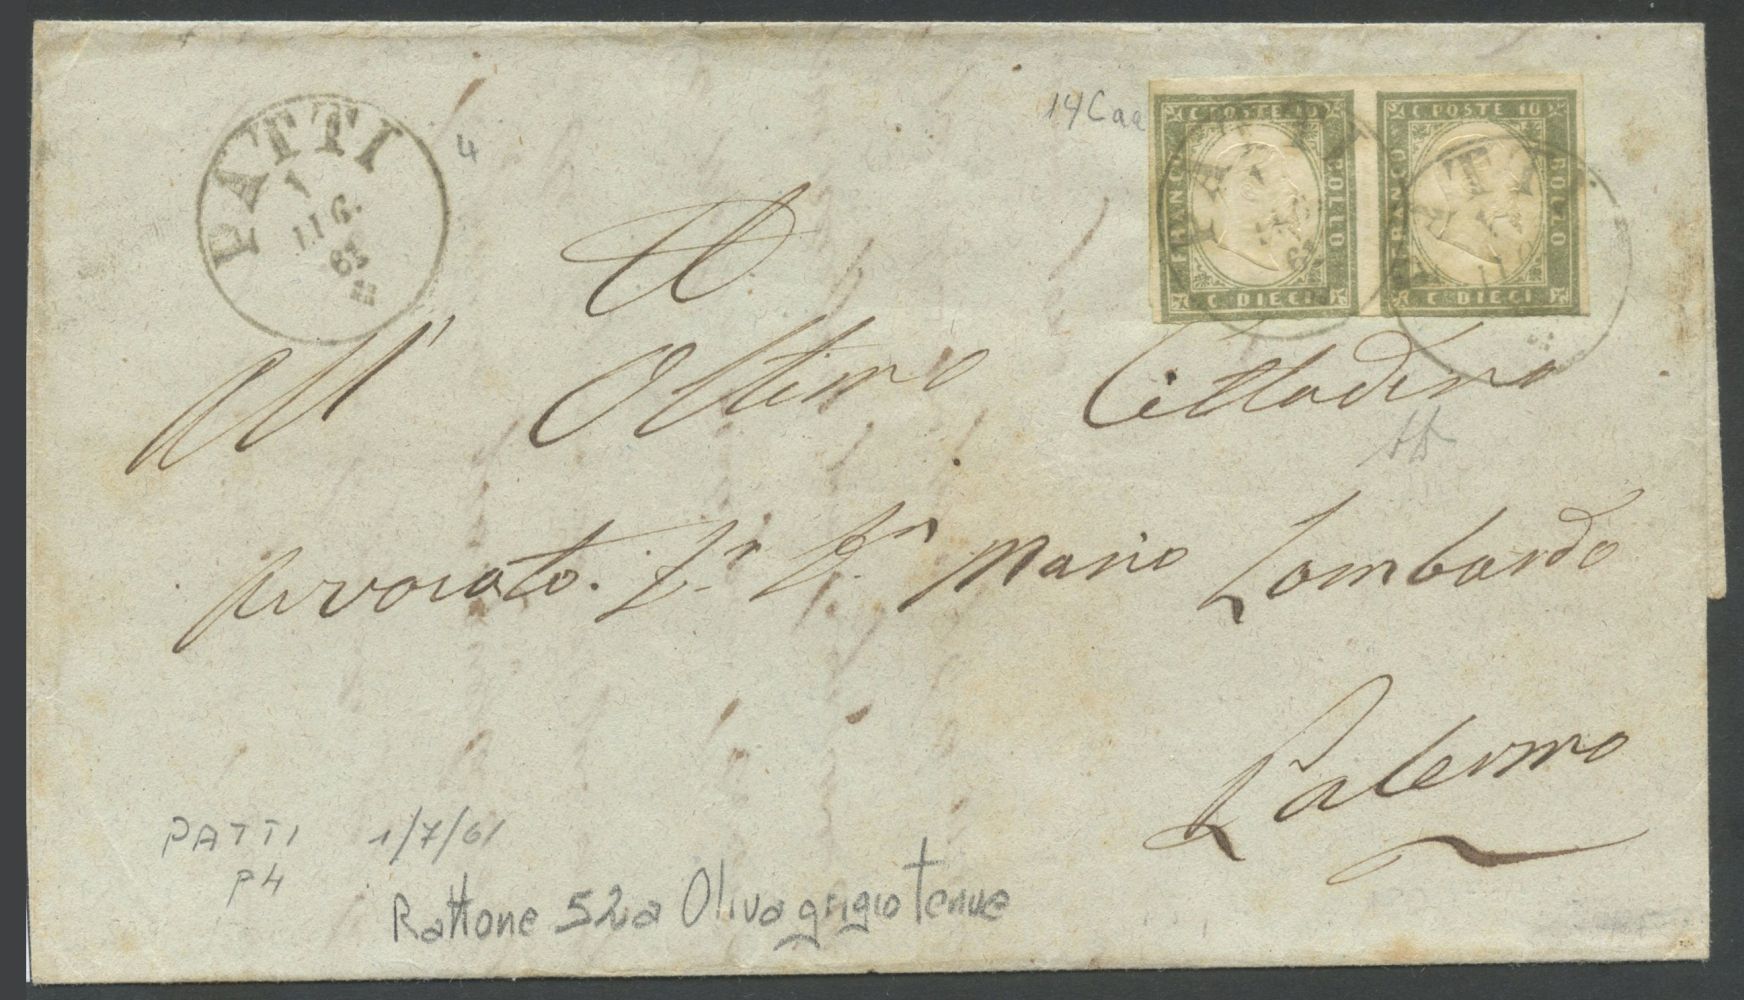 PATTI
1
LUG.
61
4
14Caa
C POSTE 10
FRANCO
BOLLO
C DIECI
C POSTE 10
FRANCO
BOLLO
C DIECI
All' Ottimo Cittadino
Mario Lombardo
Palermo
PATTI 1/7/61
P4
Rattone 52a Oliva grigio Tenue